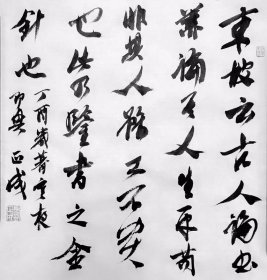 東坡云古人論書
兼論其人生平苟
非其人雖工不貴
也此乃鑒書之金
針也
丁酉歲暮雪夜
正成